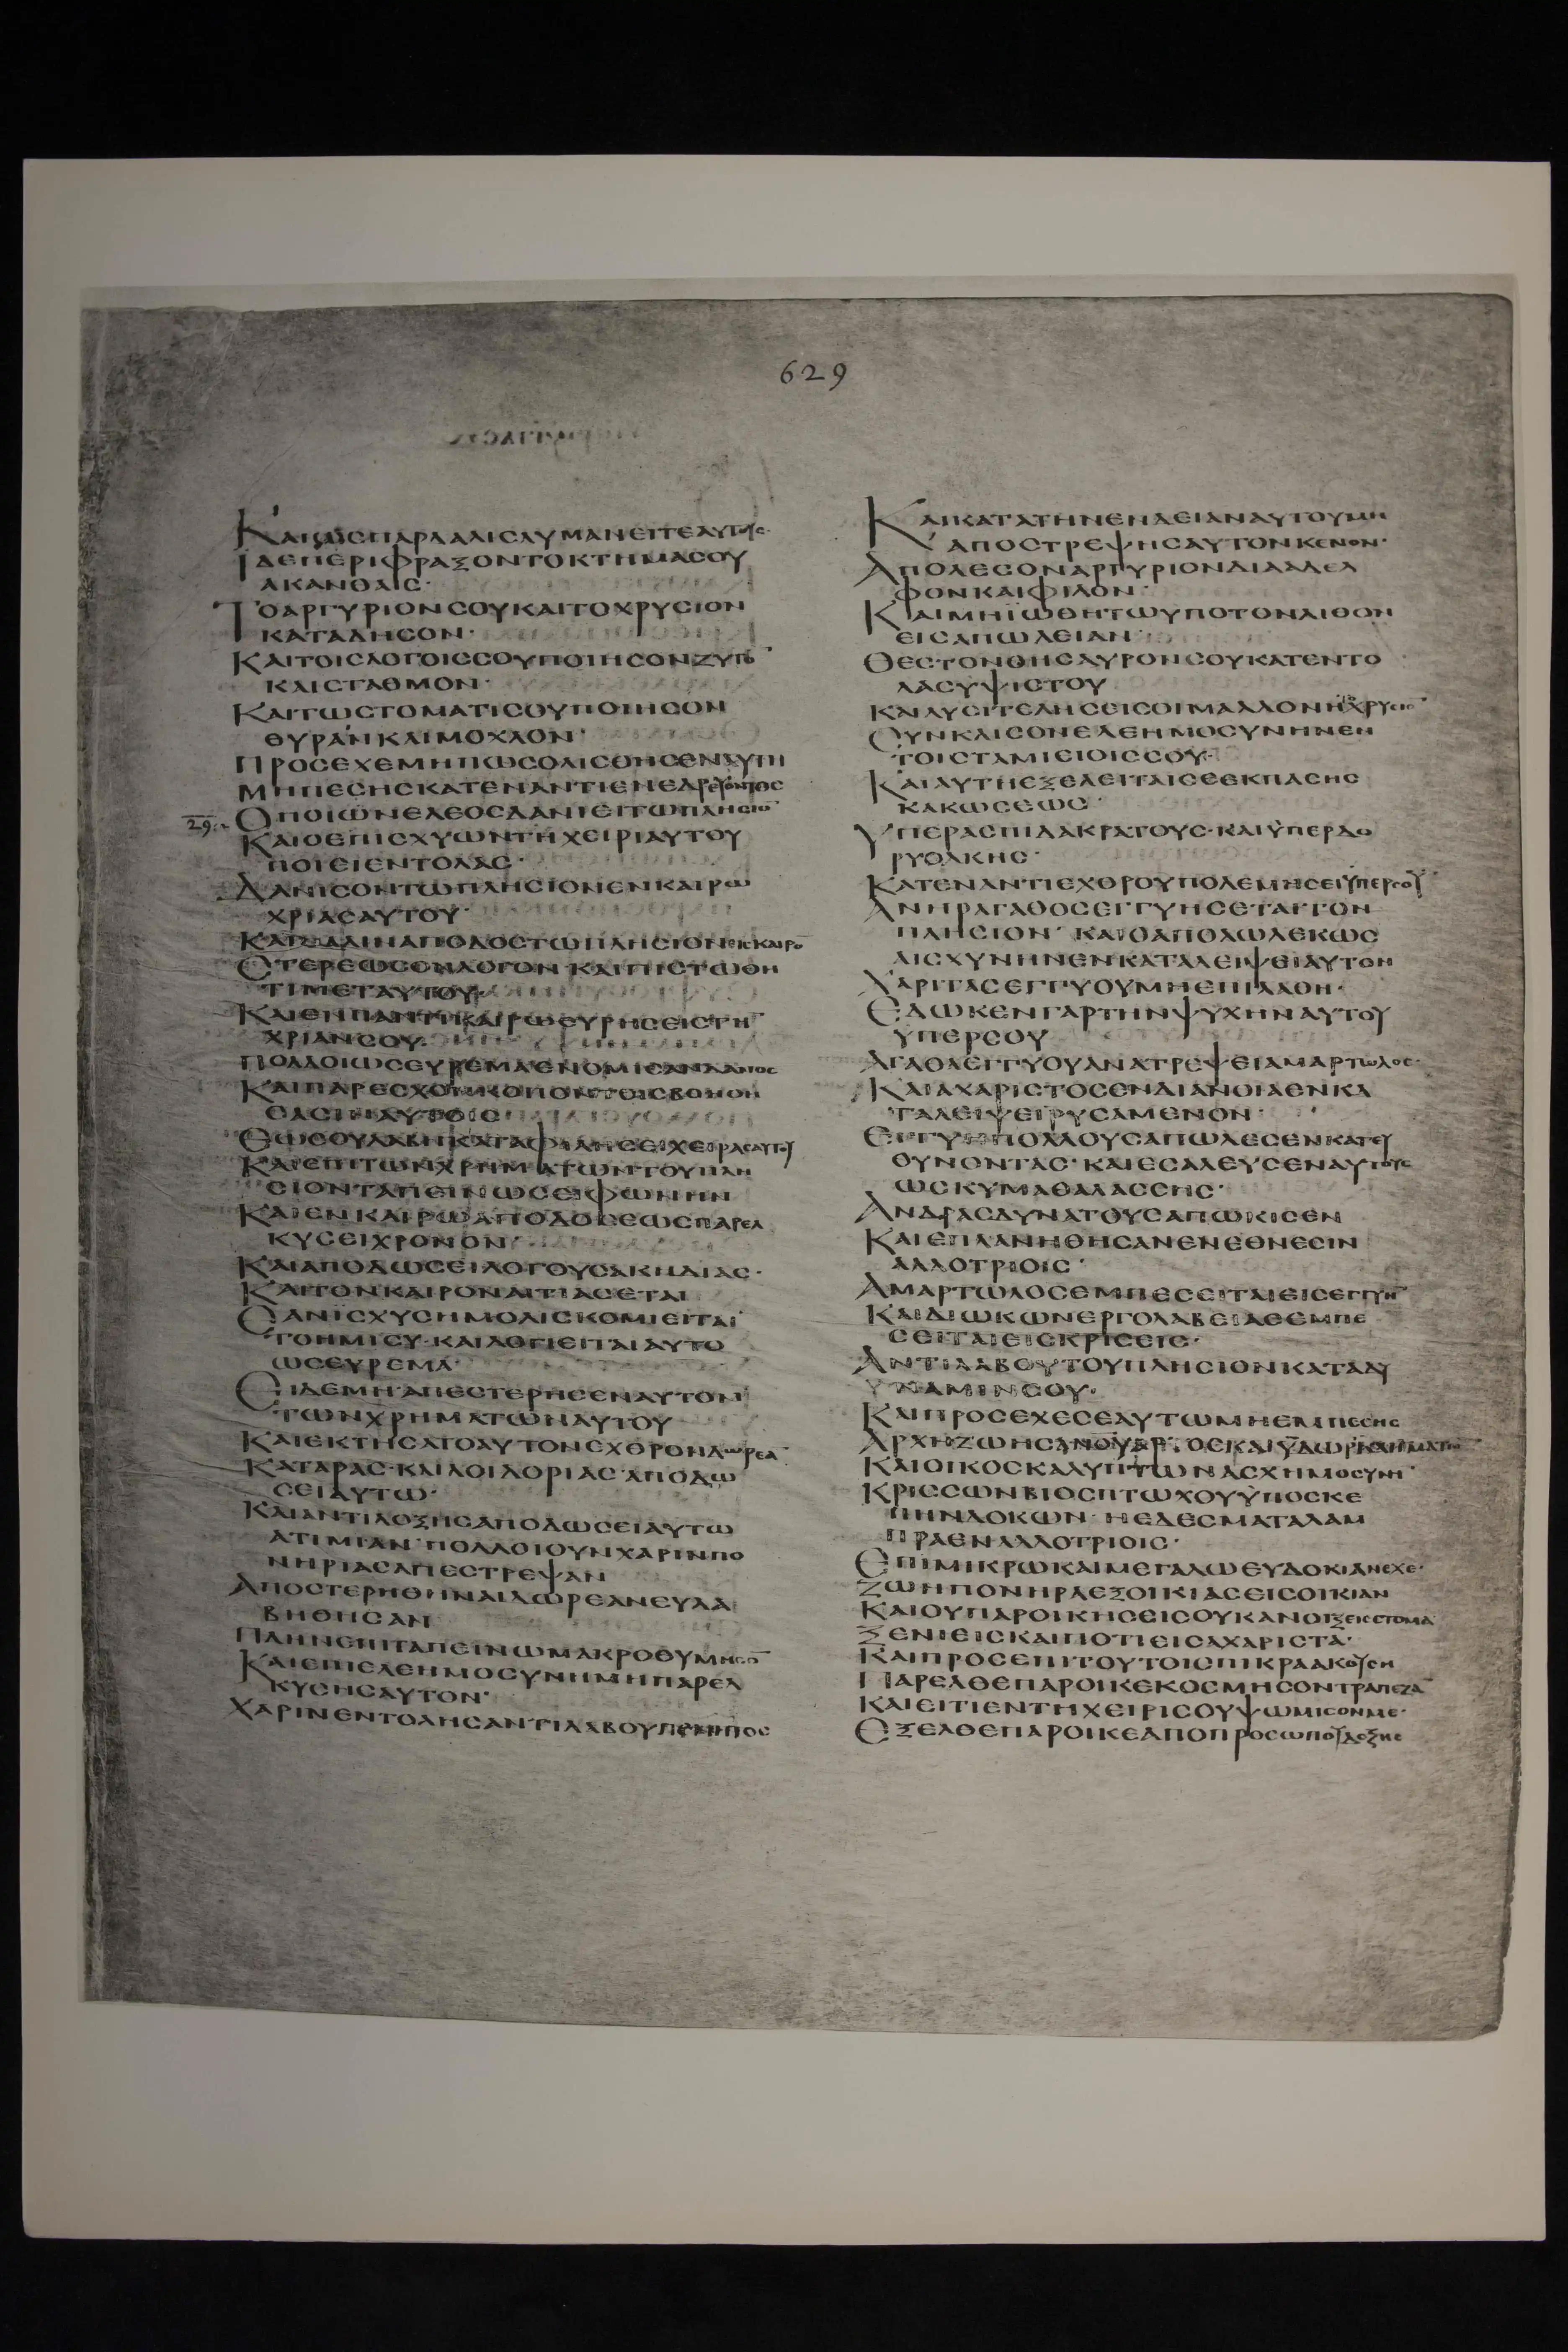 629
ΚΑΙΩΣΠΑΡΔΑΛΙΣΛΥΜΑΝΕΙΤΕΑΥΤΟΙΣ·
ΙΔΕΠΕΡΙΦΡΑΞΟΝΤΟΚΤΗΜΑΣΟΥ
ΑΚΑΝΘΑΙΣ·
ΤΟΑΡΓΥΡΙΟΝΣΟΥΚΑΙΤΟΧΡΥΣΙΟΝ
ΚΑΤΑΔΗΣΟΝ·
ΚΑΙΤΟΙΣΛΟΓΟΙΣΣΟΥΠΟΙΗΣΟΝΖΥΓΟ̅
ΚΑΙΣΤΑΘΜΟΝ·
ΚΑΙΤΩΣΤΟΜΑΤΙΣΟΥΠΟΙΗΣΟΝ
ΘΥΡΑΝΚΑΙΜΟΧΛΟΝ·
ΠΡΟΣΕΧΕΜΗΠΩΣΟΛΙΣΘΗΣΕΝΑΥΤΗ
ΜΗΠΕΣΗΣΚΑΤΕΝΑΝΤΙΕΝΕΔΡΕΥΟΝΤΟΣ
29. ΟΠΟΙΩΝΕΛΕΟΣΔΑΝΙΕΙΤΩΠΛΗΣΙΟ̅
ΚΑΙΟΕΠΙΣΧΥΩΝΤΗΧΕΙΡΙΑΥΤΟΥ
ΠΟΙΕΙΕΝΤΟΛΑΣ·
ΔΑΝΙΣΟΝΤΩΠΛΗΣΙΟΝΕΝΚΑΙΡΩ
ΧΡΙΑΣΑΥΤΟΥ·
ΚΑΙΠΑΛΙΝΑΠΟΔΟΣΤΩΠΛΗΣΙΟΝΕΙΣΚΑΙΡΟ̅
ΣΤΕΡΕΩΣΟΝΛΟΓΟΝ·ΚΑΙΠΙΣΤΩΘΗ
ΤΙΜΕΤΑΥΤΟΥ·
ΚΑΙΕΝΠΑΝΤΙΚΑΙΡΩΕΥΡΗΣΕΙΣΤΗ̅
ΧΡΙΑΝΣΟΥ·
ΠΟΛΛΟΙΩΣΕΥΡΕΜΑΕΝΟΜΙΣΑΝΔΑΝΟΣ
ΚΑΙΠΑΡΕΣΧΟΝΚΟΠΟΝΤΟΙΣΒΟΗΘΗ
ΘΑΣΙΝΑΥΤΟΙΣ
ΕΩΣΟΥΛΑΒΗΚΑΤΑΦΙΛΗΣΕΙΧΕΙΡΑΣΑΥΤΟΥ
ΚΑΙΕΠΙΤΩΝΧΡΗΜΑΤΩΝΤΟΥΠΛΗ
ΣΙΟΝΤΑΠΕΙΝΩΣΕΙΦΩΝΗΝ
ΚΑΙΕΝΚΑΙΡΩΑΠΟΔΟΣΕΩΣΠΑΡΕΛ
ΚΥΣΕΙΧΡΟΝΟΝ·
ΚΑΙΑΠΟΔΩΣΕΙΛΟΓΟΥΣΑΚΗΔΙΑΣ·
ΚΑΙΤΟΝΚΑΙΡΟΝΑΙΤΙΑΣΕΤΑΙ
ΕΑΝΙΣΧΥΣΗΜΟΛΙΣΚΟΜΙΕΙΤΑΙ
ΤΟΗΜΙΣΥ·ΚΑΙΛΟΓΙΕΙΤΑΙΑΥΤΟ
ΩΣΕΥΡΕΜΑ·
ΕΙΔΕΜΗΑΠΕΣΤΕΡΗΣΕΝΑΥΤΟΝ
ΤΩΝΧΡΗΜΑΤΩΝΑΥΤΟΥ
ΚΑΙΕΚΤΗΣΑΤΟΑΥΤΟΝΕΧΘΡΟΝΔΩΡΕΑ̅
ΚΑΤΑΡΑΣ·ΚΑΙΛΟΙΔΟΡΙΑΣ·ΑΠΟΔΩ
ΣΕΙΑΥΤΩ·
ΚΑΙΑΝΤΙΔΟΞΗΣΑΠΟΔΩΣΕΙΑΥΤΩ
ΑΤΙΜΙΑΝ·ΠΟΛΛΟΙΟΥΝΧΑΡΙΝΠΟ
ΝΗΡΙΑΣΑΠΕΣΤΡΕΨΑΝ
ΑΠΟΣΤΕΡΗΘΗΝΑΙΔΩΡΕΑΝΕΥΛΑ
ΒΗΘΗΣΑΝ
ΠΛΗΝΕΠΙΤΑΠΕΙΝΩΜΑΚΡΟΘΥΜΗΣΟ̅
ΚΑΙΕΠΕΛΕΗΜΟΣΥΝΗΜΗΠΑΡΕΛ
ΚΥΣΗΣΑΥΤΟΝ·
ΧΑΡΙΝΕΝΤΟΛΗΣΑΝΤΙΛΑΒΟΥΠΕΝΗΤΟΣ
ΚΑΙΚΑΤΑΤΗΝΕΝΔΕΙΑΝΑΥΤΟΥΜΗ
ΑΠΟΣΤΡΕΨΗΣΑΥΤΟΝΚΕΝΟΝ·
ΑΠΟΛΕΣΟΝΑΡΓΥΡΙΟΝΔΙΑΔΕΛ
ΦΟΝΚΑΙΦΙΛΟΝ·
ΚΑΙΜΗΪΩΘΗΤΩΥΠΟΤΟΝΛΙΘΟΝ
ΕΙΣΑΠΩΛΕΙΑΝ
ΘΕΣ·ΤΟΝΘΗΣΑΥΡΟΝΣΟΥΚΑΤΕΝΤΟ
ΛΑΣΥΨΙΣΤΟΥ
ΚΑΙΛΥΣΙΤΕΛΗΣΕΙΣΟΙΜΑΛΛΟΝΗΤΟΧΡΥΣΙΟ̅
ΣΥΝΚΛΙΣΟΝΕΛΕΗΜΟΣΥΝΗΝΕΝ
ΤΟΙΣΤΑΜΙΕΙΟΙΣΣΟΥ·
ΚΑΙΑΥΤΗΕΞΕΛΕΙΤΑΙΣΕΕΚΠΑΣΗΣ
ΚΑΚΩΣΕΩΣ·
ΥΠΕΡΑΣΠΙΔΑΚΡΑΤΟΥΣ·ΚΑΙΥΠΕΡΔΟ
ΡΥΟΛΚΗΣ·
ΚΑΤΕΝΑΝΤΙΕΧΘΡΟΥΠΟΛΕΜΗΣΕΙΥΠΕΡΣΟΥ
ΑΝΗΡΑΓΑΘΟΣΕΓΓΥΗΣΕΤΑΙΤΟΝ
ΠΛΗΣΙΟΝ· ΚΑΙΟΑΠΟΛΩΛΕΚΩΣ
ΑΙΣΧΥΝΗΝΕΝΚΑΤΑΛΕΙΨΕΙΑΥΤΟΝ
ΧΑΡΙΤΑΣΕΓΓΥΟΥΜΗΕΠΙΛΑΘΗ·
ΕΔΩΚΕΝΓΑΡΤΗΝΨΥΧΗΝΑΥΤΟΥ
ΥΠΕΡΣΟΥ
ΑΓΑΘΑΕΓΓΥΟΥΑΝΑΤΡΕΨΕΙΑΜΑΡΤΩΛΟΣ·
ΚΑΙΑΧΑΡΙΣΤΟΣΕΝΔΙΑΝΟΙΑΕΝΚΑ
ΤΑΛΕΙΨΕΙΡΥΣΑΜΕΝΟΝ·
ΕΓΓΥΗΠΟΛΛΟΥΣΑΠΩΛΕΣΕΝΚΑΤΕΥ
ΘΥΝΟΝΤΑΣ·ΚΑΙΕΣΑΛΕΥΣΕΝΑΥΤΟΥΣ
ΩΣΚΥΜΑΘΑΛΑΣΣΗΣ·
ΑΝΔΡΑΣΔΥΝΑΤΟΥΣΑΠΩΚΙΣΕΝ
ΚΑΙΕΠΛΑΝΗΘΗΣΑΝΕΝΕΘΝΕΣΙΝ
ΑΛΛΟΤΡΙΟΙΣ·
ΑΜΑΡΤΩΛΟΣΕΜΠΕΣΕΙΤΑΙΕΙΣΕΓΓΥΗ̅
ΚΑΙΔΙΩΚΩΝΕΡΓΟΛΑΒΕΙΑΕΜΠΕ
ΣΕΙΤΑΙΕΙΣΚΡΙΣΕΙΣ·
ΑΝΤΙΛΑΒΟΥΤΟΥΠΛΗΣΙΟΝΚΑΤΑΔΥ
ΝΑΜΙΝΣΟΥ·
ΚΑΙΠΡΟΣΕΧΕΣΕΑΥΤΩΜΗΕΜΠΕΣΗΣ
ΑΡΧΗΖΩΗΣΑΝΟΥ ΚΑΙΥΔΩΡΚΑΙΙΜΑΤΙΟ̅
ΚΑΙΟΙΚΟΣΚΑΛΥΠΤΩΝΑΣΧΗΜΟΣΥΝΗ̅
ΚΡΙΣΣΩΝΒΙΟΣΠΤΩΧΟΥΥΠΟΣΚΕ
ΠΗΝΔΟΚΩΝ·ΗΕΔΕΣΜΑΤΑΛΑΜ
ΠΡΑΕΝΑΛΛΟΤΡΙΟΙΣ·
ΕΠΙΜΙΚΡΩΚΑΙΜΕΓΑΛΩΕΥΔΟΚΙΑΝΕΧΕ·
ΖΩΗΠΟΝΗΡΑΕΞΟΙΚΙΑΣΕΙΣΟΙΚΙΑΝ
ΚΑΙΟΥΠΑΡΟΙΚΗΣΕΙΣΟΥΚΑΝΟΙΞΕΙΣΣΤΟΜΑ
ΞΕΝΙΕΙΣΚΑΙΠΟΤΙΕΙΣΑΧΑΡΙΣΤΑ·
ΚΑΙΠΡΟΣΕΠΙΤΟΥΤΟΙΣΠΙΚΡΑΑΚΟΥΣΗ
ΠΑΡΕΛΘΕΠΑΡΟΙΚΕΚΟΣΜΗΣΟΝΤΡΑΠΕΖΑ̅
ΚΑΙΕΙΤΙΕΝΤΗΧΕΙΡΙΣΟΥΨΩΜΙΣΟΝΜΕ·
ΕΞΕΛΘΕΠΑΡΟΙΚΕΑΠΟΠΡΟΣΩΠΟΥΔΟΞΗΣ